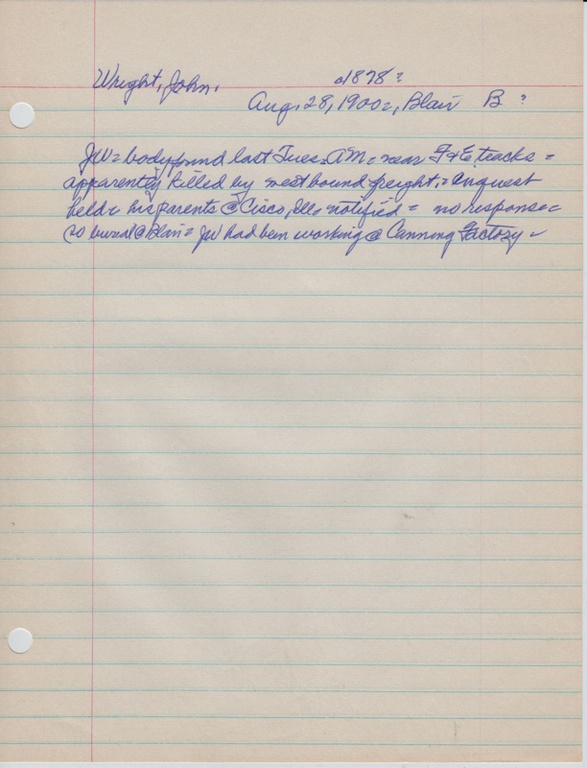 Wright, John. c1878?
Aug. 28, 1900 =, Blair B ?
JW = body found last Tues. AM = near F&E tracks =
apparently killed by westbound freight, = Inquest
held = his parents @ Cisco, Ills notified = no response =
so burial @ Blair = JW had been working @ Canning Factory =